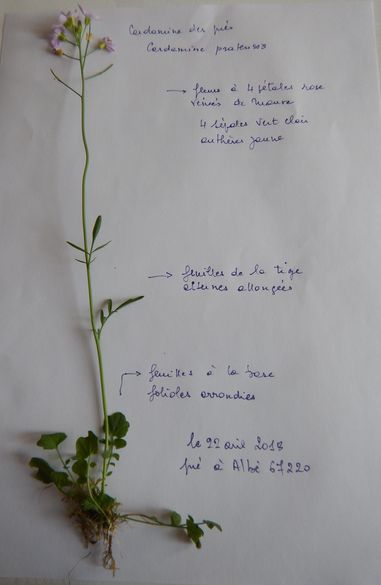 Cardamine des prés
Cardamine pratensis
→ fleurs à 4 pétales rose
veinés de mauve
4 sépales vert clair
anthères jaune
→ feuilles de la tige
alternes allongées
→ feuilles à la base
folioles arrondies
le 22 avril 2018
pré à Albé 67220